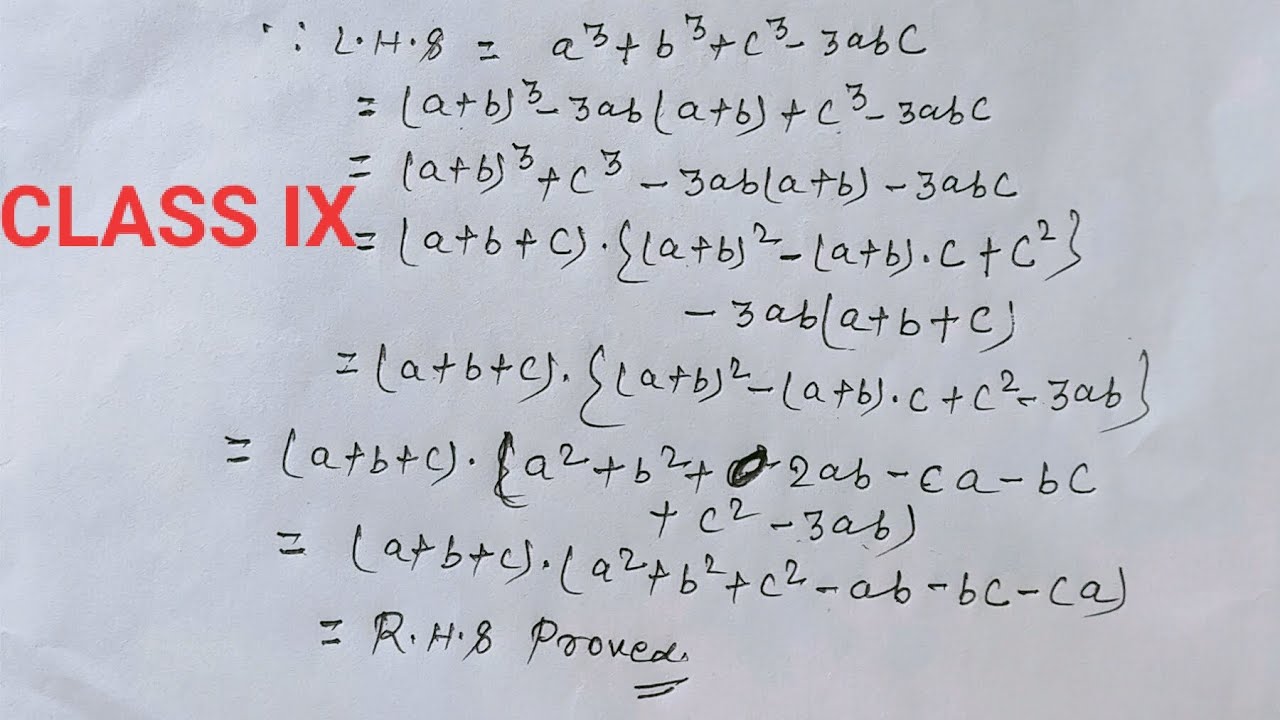 ∵ L.H.S = a³+b³+c³-3abc
= (a+b)³-3ab(a+b)+c³-3abc
= (a+b)³+c³-3ab(a+b)-3abc
CLASS IX
= (a+b+c)·{(a+b)²-(a+b)·c+c²}
-3ab(a+b+c)
= (a+b+c)·{(a+b)²-(a+b)·c+c²-3ab}
= (a+b+c)·(a²+b²+2ab-ca-bc
+c²-3ab)
= (a+b+c)·(a²+b²+c²-ab-bc-ca)
= R.H.S Proved.